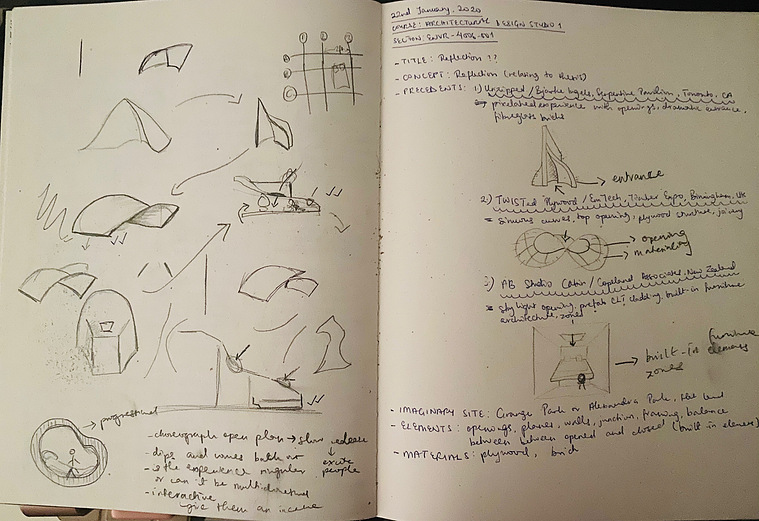 progressional
- choreograph open plan → slow release
- dips and waves both or
↓ excite people
- is the experience singular
or can it be multidirectional
- interactive
give them an incentive
22nd January, 2020
COURSE: ARCHITECTURAL DESIGN STUDIO 1
SECTION: ENVR-4006-001
- TITLE: Reflection ??
- CONCEPT: Reflection (relating to thesis)
- PRECEDENTS: 1) Unzipped / Bjarke Ingels, Serpentine Pavilion, Toronto, CA
pixelated experience with openings, dramatic entrance,
fibreglass bricks
→ entrance
2) TWISTed Plywood / EmTech, Timber Expo, Birmingham, UK
sinuous curves, top opening, plywood structure, joinery
→ opening
→ materiality
3) AB Studio Cabin / Copeland Associates, New Zealand
sky light opening, prefab CLT cladding, built-in furniture
architecture, zones
→ built-in furniture elements
zones
- IMAGINARY SITE: Grange Park or Alexandra Park,
- ELEMENTS: openings, planes, walls, junction, framing, balance
between between opened and closed (built in elements)
- MATERIALS: plywood, brick